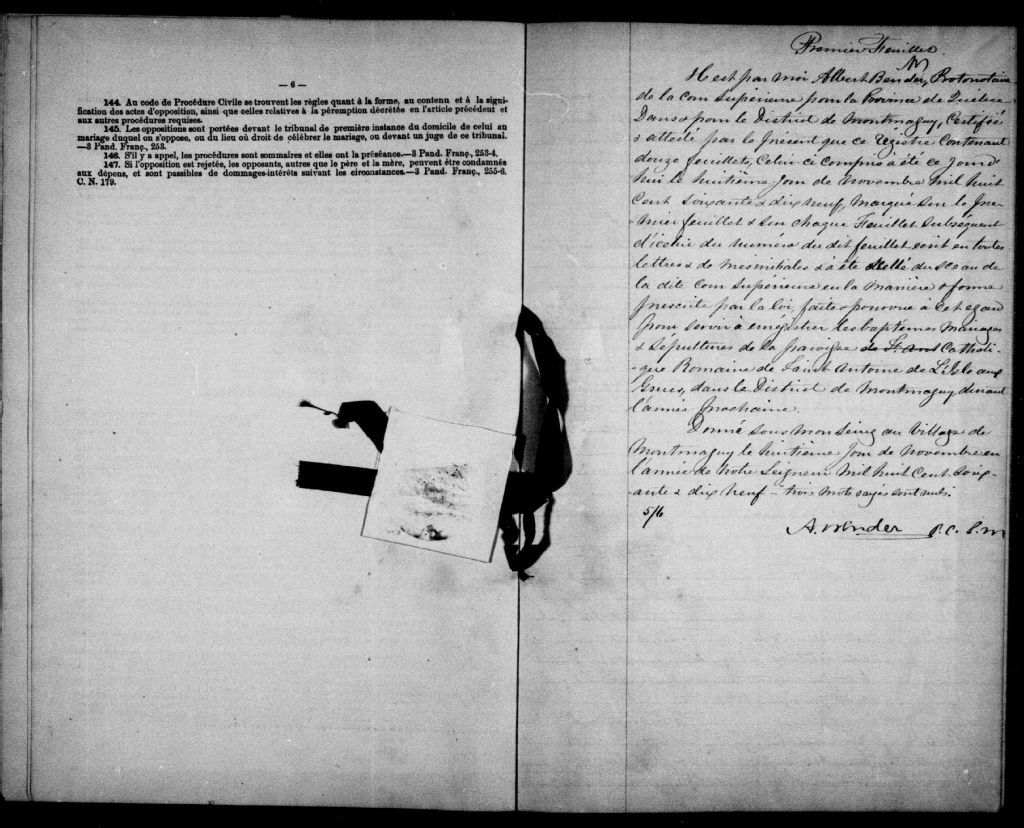 — 6 —
144. Au code de Procédure Civile se trouvent les règles quant à la forme, au contenu et à la signi-
fication des actes d'opposition, ainsi que celles relatives à la péremption décrétée en l'article précédent et
aux autres procédures requises.
145. Les oppositions sont portées devant le tribunal de première instance du domicile de celui au
mariage duquel on s'oppose, ou du lieu où droit de célébrer le mariage, ou devant un juge de ce tribunal.
—3 Pand. Franç., 253.
146. S'il y a appel, les procédures sont sommaires et elles ont la préséance.—3 Pand. Franç., 253-4.
147. Si l'opposition est rejetée, les opposants, autres que le père et la mère, peuvent être condamnés
aux dépens, et sont passibles de dommages-intérêts suivant les circonstances.—3 Pand. Franç., 255-6.
C. N. 179.
Premier Feuillet.
Il est par moi Albert Bender, Protonotaire
de la Cour Supérieure pour la Province de Québec
Dans & pour le District de Montmagny, Certifié
& attesté par le présent que ce Régistre contenant
douze feuillets, Celui ci compris a été ce jourd
hui le huitième jour de Novembre mil huit
Cent soixante & dix neuf, Marqué sur le pre-
mier feuillet & sur chaque Feuillet Subséquent
d'icelui du numéro du dit feuillet écrit en toutes
lettres & de mes initiales & a été scellé du sceau de
la dite Cour Supérieure en la manière & forme
prescrite par la loi, faite & pourvue à cet égard
pour servir à enrégistrer les baptêmes Mariages
& Sépultures de la paroisse de St. Ant Catholi-
-que Romaine de Saint Antoine de L'Isle aux
Grues, dans le District de Montmagny durant
l'année prochaine.
Donné sous mon Seing au Village de
Montmagny le huitième jour de novembre en
l'année de Notre Seigneur mil huit Cent soix-
-ante & dix neuf — trois mots rayés sont nuls.
5/6
A. Bender P. C. S. M